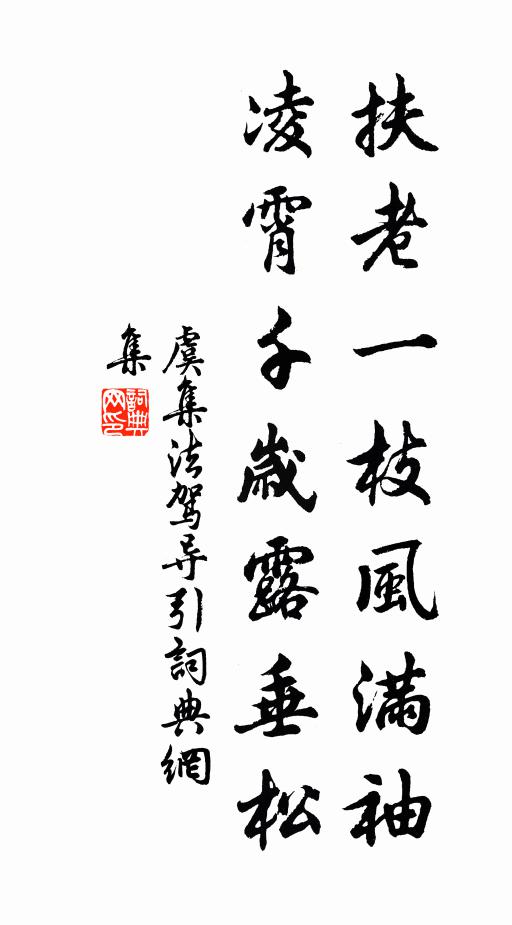 扶老一枝風滿袖
凌霄千歲露垂松
虞集法駕导引詞典網
集
詞典
网印